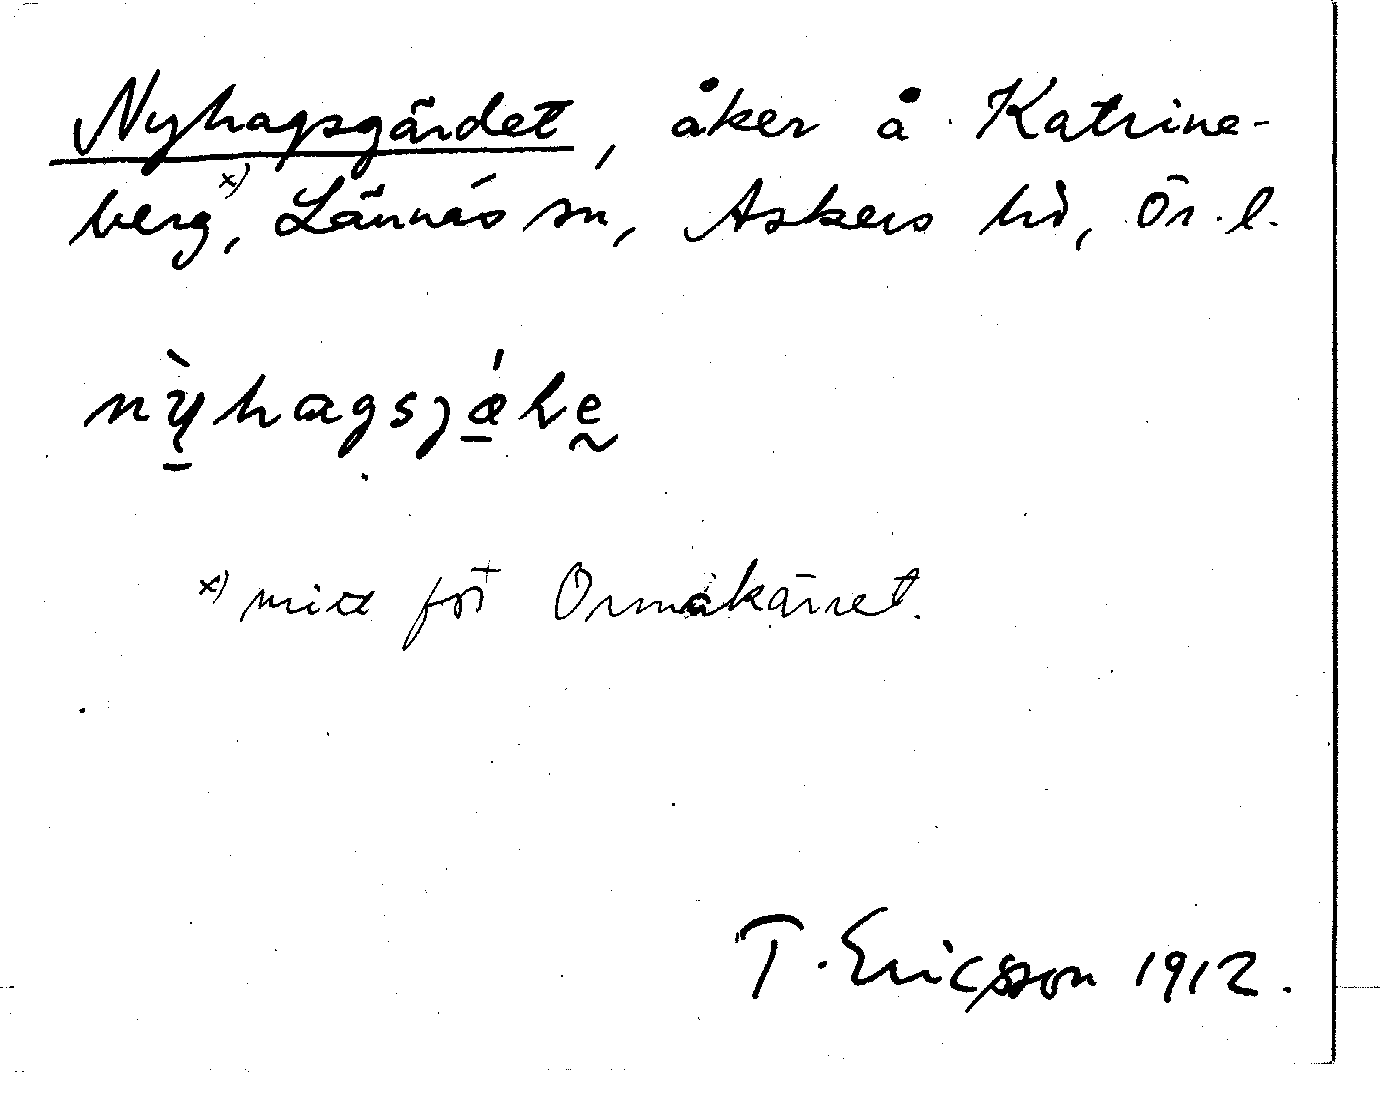 Nyhagsgärdet, åker å Katrine-
berg x), Lännäs sn, Askers hd, Ör.l.
nỳhagsjǽḷe
x) mitt för Ormakärret.
T. Ericsson 1912.